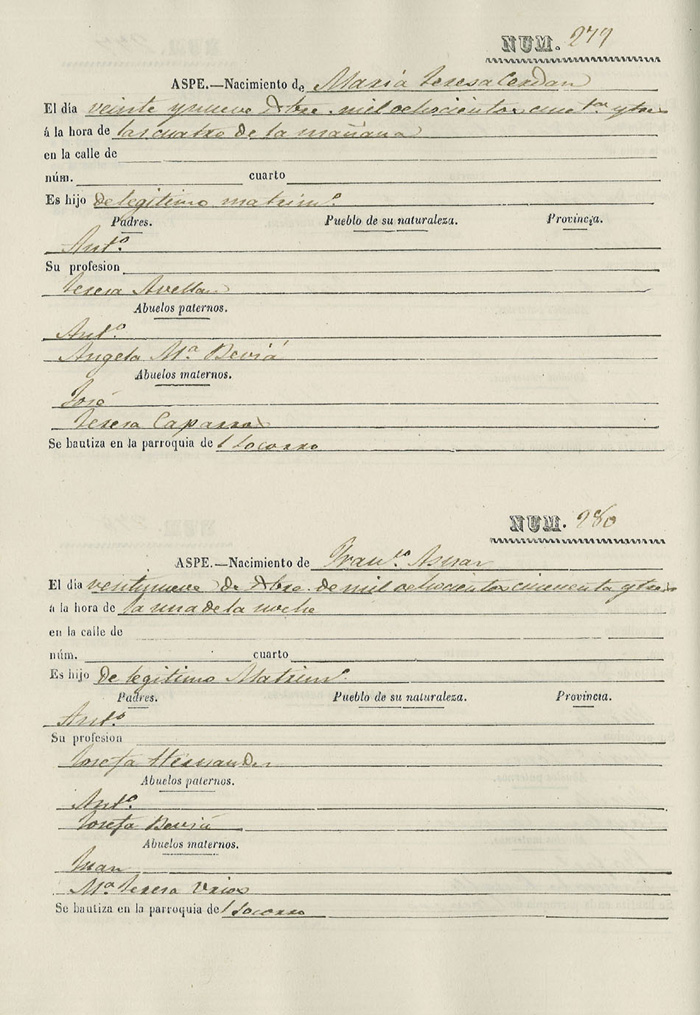 NUM. 279
ASPE.—Nacimiento de María Teresa Cerdan
El día veinte y nueve Xbre. mil ochocientos cincta. y tres
á la hora de las cuatro de la mañana
en la calle de
núm. cuarto
Es hijo de legitimo matrimo.
Padres. Pueblo de su naturaleza. Provincia.
Anto.
Su profesion
Teresa Avellan
Abuelos paternos.
Anto.
Angela Ma. Beviá
Abuelos maternos.
José
Teresa Caparros
Se bautiza en la parroquia de l Socorro
NUM. 280
ASPE.—Nacimiento de Franca. Asnar
El día veintynueve de Xbre. de mil ochocientos cincuenta y tres
á la hora de la una de la noche
en la calle de
núm. cuarto
Es hijo de legitimo Matrimo.
Padres. Pueblo de su naturaleza. Provincia.
Anto.
Su profesion
Josefa Hernandez
Abuelos paternos.
Anto.
Josefa Beviá
Abuelos maternos.
Juan
Ma. Teresa Urios
Se bautiza en la parroquia de l Socorro